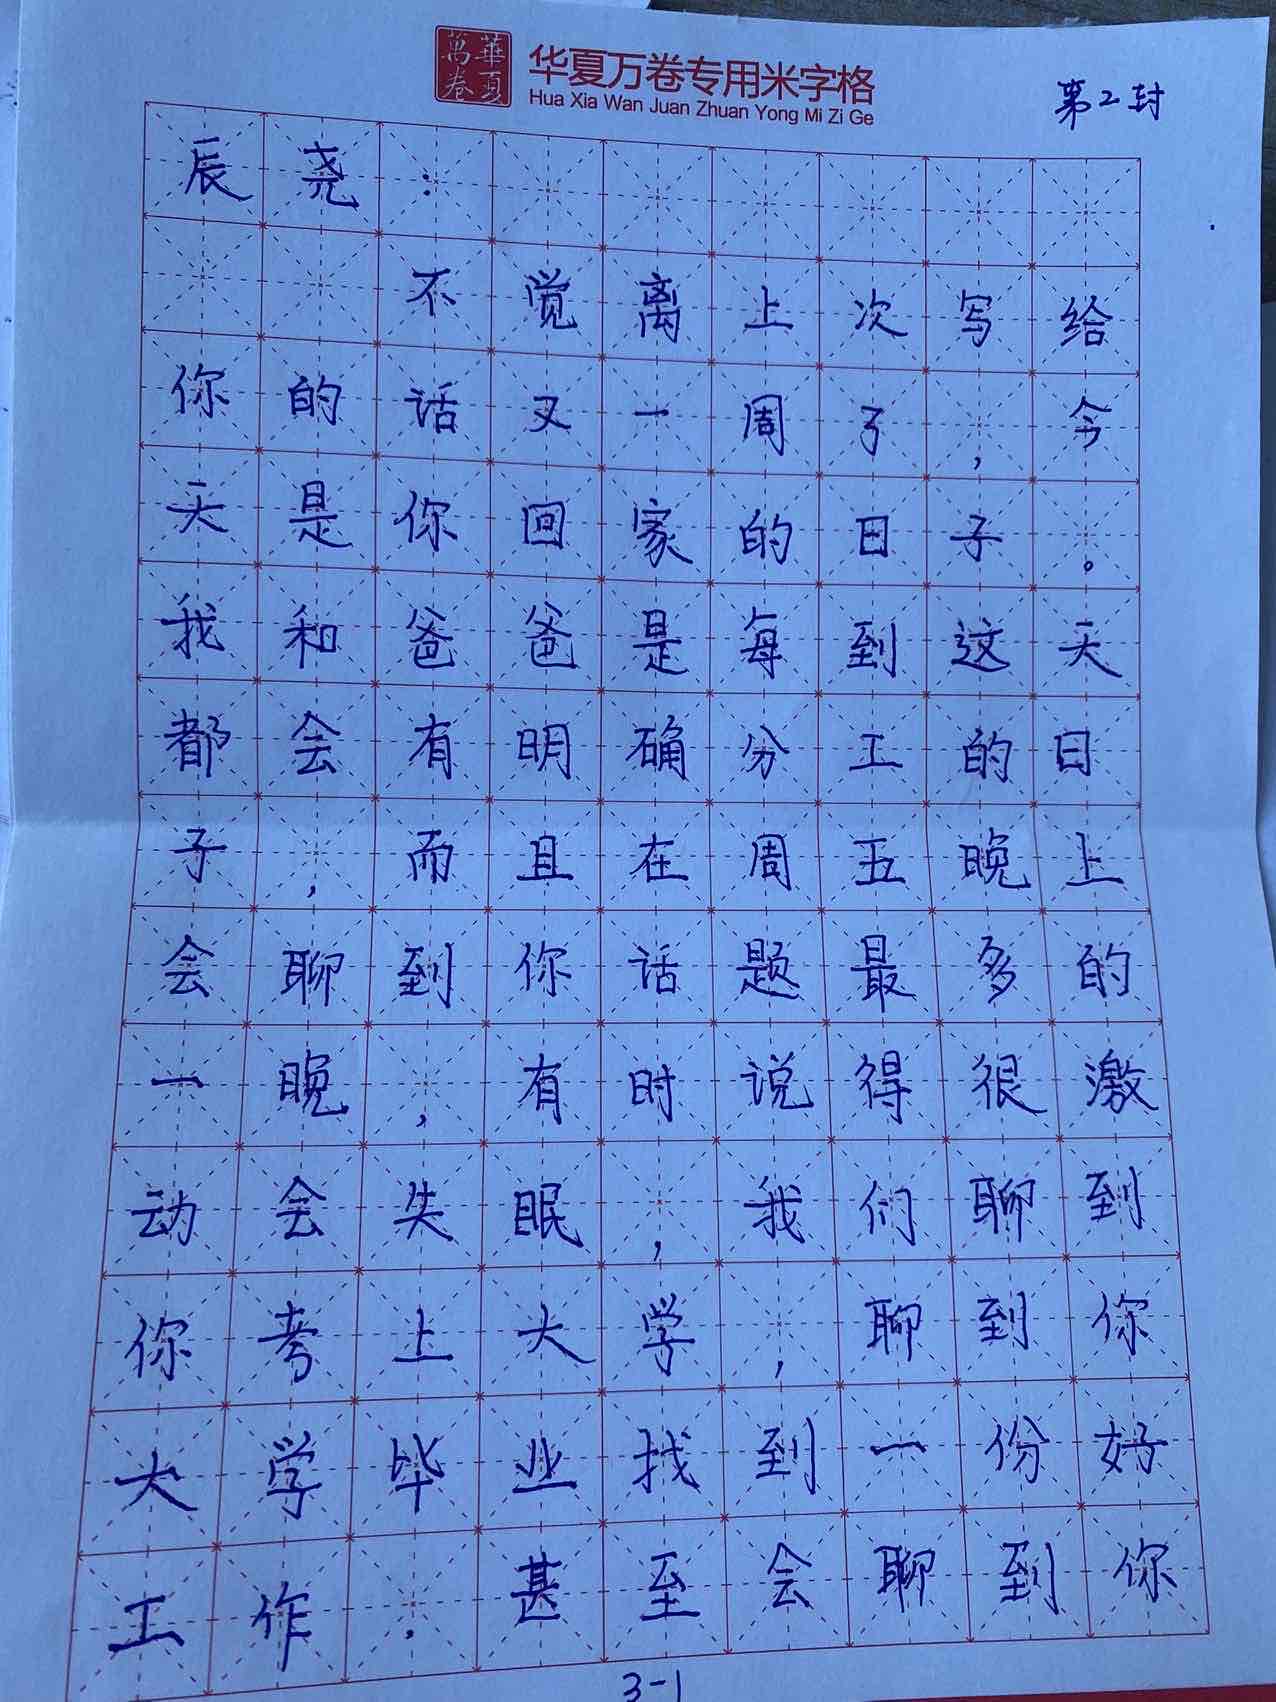 萬卷 華夏
华夏万卷专用米字格
Hua Xia Wan Juan Zhuan Yong Mi Zi Ge
第2封
辰尧：
不觉离上次写给
你的话又一周了，今
天是你回家的日子。
我和爸爸是每到这天
都会有明确分工的日
子，而且在周五晚上
会聊到你话题最多的
一晚，有时说得很激
动会失眠，我们聊到
你考上大学，聊到你
大学毕业找到一份好
工作，甚至会聊到你
3-1